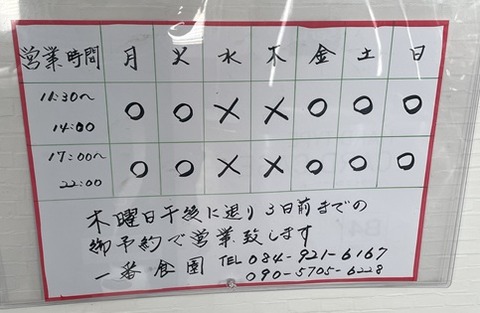 営業時間 月 火 水 木 金 土 日
11:30〜
14:00 ○ ○ × × ○ ○ ○
17:00〜
22:00 ○ ○ × × ○ ○ ○
木曜日午後に限り3日前までの
御予約で営業致します
一番食園 TEL 084-921-6167
090-5705-6228